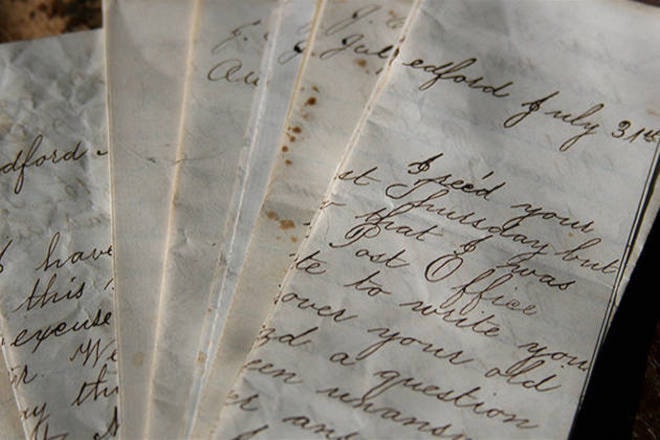 dford
I have
this
excuse
r. We
ay thi
J.
Au
J. C
July
edford July 31st
I rec'd your
st Thursday but
that I was
Post Office
te to write you
over your old
nd a question
een unansw
er and